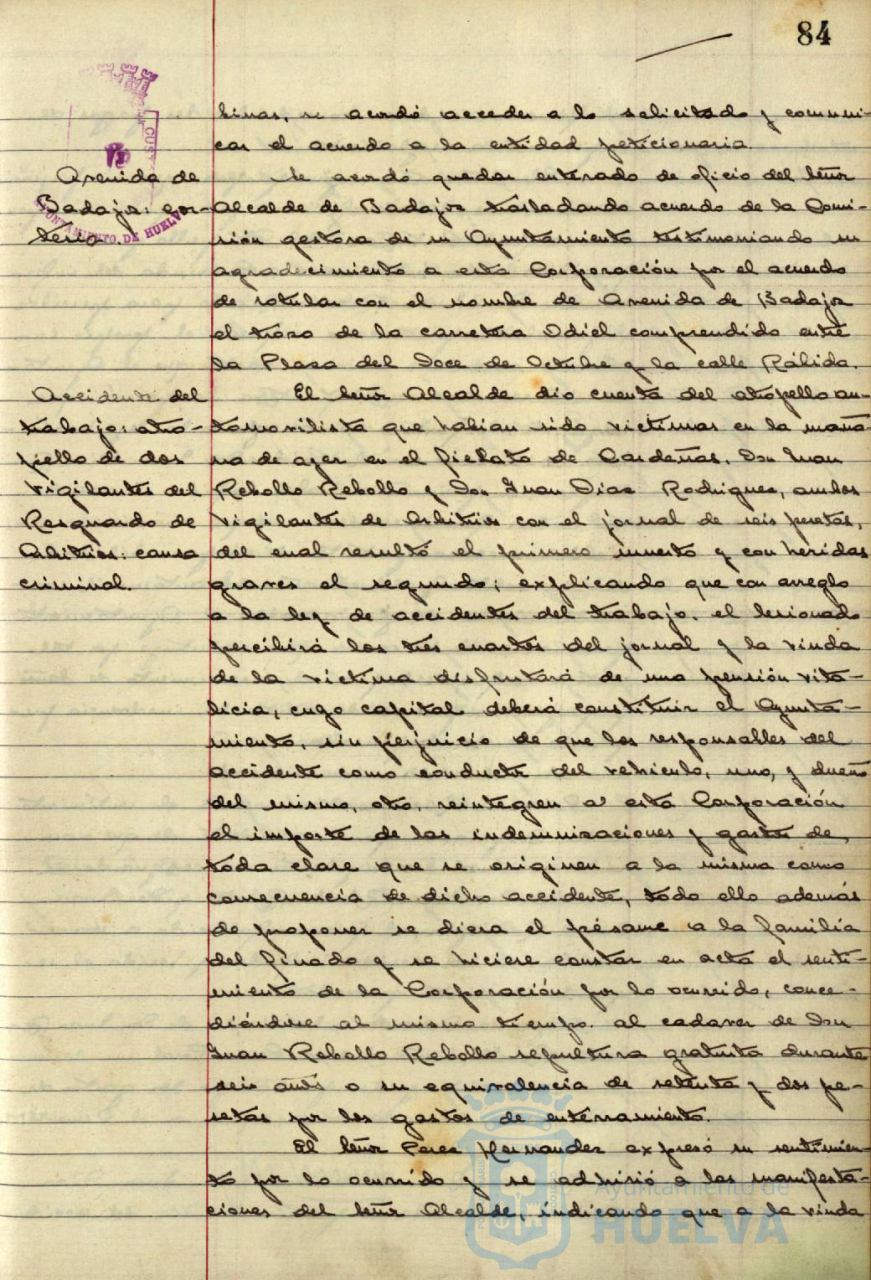 84
binas, se acordó acceder a lo solicitado y comuni-
car el acuerdo a la entidad peticionaria.
Avenida de
Badajoz: cor-
tesía
Se acordó quedar enterado de oficio del Señor
Alcalde de Badajoz trasladando acuerdo de la Comi-
sión gestora de su Ayuntamiento testimoniando su
agradecimiento a esta Corporación por el acuerdo
de rotular con el nombre de Avenida de Badajoz
el trozo de la carretera Odiel comprendido entre
la Plaza del Doce de Octubre y la calle Rábida.
Accidente del
trabajo: atro-
pello de dos
vigilantes del
Resguardo de
Arbitrios: causa
criminal.
El Señor Alcalde dio cuenta del atropello au-
tomovilista que habian sido victimas en la maña-
na de ayer en el fielato de Cardeñas, Don Juan
Rebollo Rebollo y Don Juan Diaz Rodriguez, ambos
vigilantes de Arbitrios con el jornal de seis pesetas,
del cual resultó el primero muerto y con heridas
graves el segundo; explicando que con arreglo
a la ley de accidentes del trabajo, el lesionado
percibirá los tres cuartos del jornal y la viuda
de la victima disfrutará de una pensión vita-
licia, cuyo capital deberá constituir el Ayunta-
miento, sin perjuicio de que los responsables del
accidente como conductor del vehiculo, uno, y dueño
del mismo, otro, reintegren a esta Corporación
el importe de las indemnizaciones y gastos de
toda clase que se originen a la misma como
consecuencia de dicho accidente, todo ello además
de proponer se diera el pésame a la familia
del finado y se hiciere constar en acta el senti-
miento de la Corporación por lo ocurrido, conce-
diéndose al mismo tiempo al cadaver de Don
Juan Rebollo Rebollo sepultura gratuita durante
seis años o su equivalencia de setenta y dos pe-
setas por los gastos de enterramiento.
El Señor Perez Hernandez expresó su sentimien-
to por lo ocurrido y se adhirió a las manifesta-
ciones del Señor Alcalde, indicando que a la viuda
AYUNTAMIENTO DE HUELVA
Ayuntamiento de
HUELVA